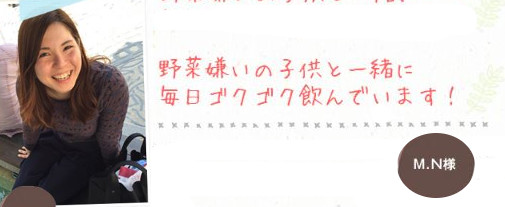 野菜嫌いの子供と一緒に
毎日ゴクゴク飲んでいます！
M.N様